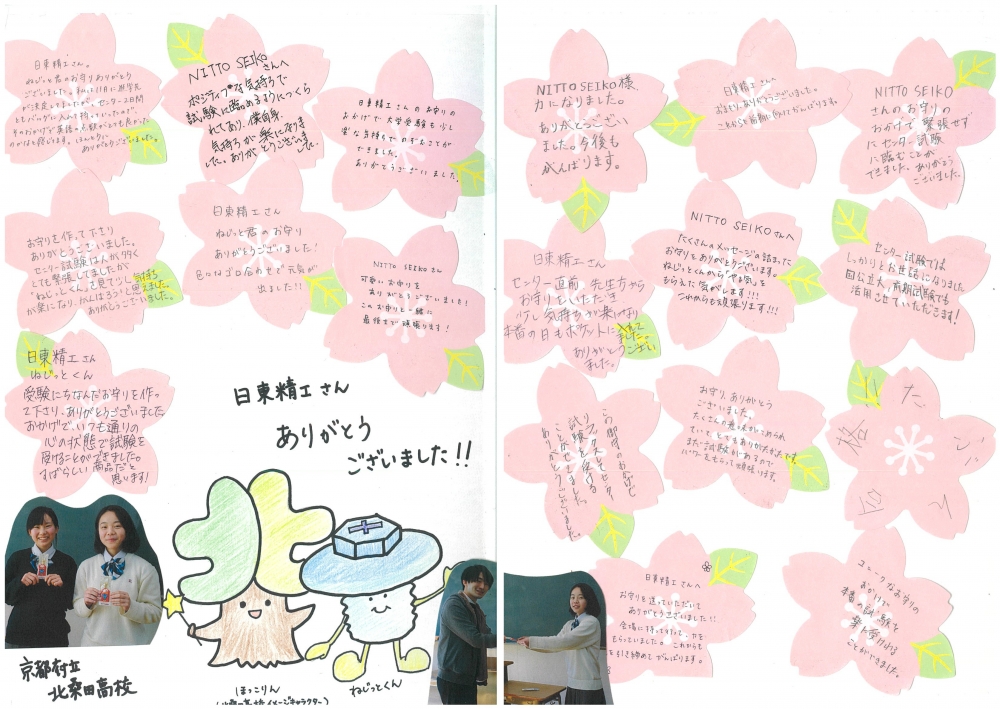 日東精工さん。
ねじっと君のお守りありがとう
ございました。私は11月に進学先
が決定しましたが、センター2日間
ともバッグに入れて持っていったので
そのおかげで英語の点数がとても良かった
のかなと感じます。ほんとうに
ありがとうございました。
NITTO SEIKOさんへ
ポジティブな気持ちで
試験に臨めるようにつくら
れてあり、僕自身、
気持ちが楽になりま
した。ありがとうございま
した。
日東精工さんのお守りの
おかげで大学受験も少し
楽な気持ちでのぞむことが
できました。
ありがとうございました。
お守りを作って下さり
ありがとうございました。
センター試験はんが多く
とても緊張してましたが
「ねじっとくん」を見て少し気持ち
が楽になり、がんばろうと思えました。
ありがとうございました。
日東精工さん
ねじっと君のお守り
ありがとうございました!
色々なゴロ合わせで元気が
出ました!!
NITTO SEIKOさん
可愛いお守りを
ありがとうございました!
このお守りと一緒に
最後まで頑張ります!
日東精工さん
ねじっとくん
受験にちなんだお守りを作っ
て下さり、ありがとうございました
おかげで、いつも通りの
心の状態で試験を
受けることができました。
すばらしい商品だと
思います!
日東精工さん
ありがとう
ございました!!
京都府立
北桑田高校
ほっこりん
イメージキャラクター)
ねじっとくん
NITTO SEIKO様、
力になりました。
ありがとうござい
ました。今後も
がんばります。
日東精工さんへ
お守り、ありがとうございました。
これからも前期に向けてがんばります。
NITTO SEIKO
さんのお守りの
おかげで緊張せず
にセンター試験
に臨むことが
できました。ありがとう
ございました。
日東精工さん
センター直前、先生方から
お守りをいただき
少し気持ちが楽になり
本番の日もポケットに入れて
ました。
ありがとうござい
ました。
NITTO SEIKOさんへ
たくさんのメッセージの詰まった
お守りをありがとうございます。
ねじっとくんから"やる気"を
もらえた気がします!!!
これからも頑張ります!!!
センター試験では
しっかりとお世話になりました
国公立大、前期試験でも
活用させていただきます!
この御守のおかげで
リラックスしてセンター
試験を受ける
ことができました。
ありがとうございました。
お守り、ありがとう
ございました。
たくさんの意味がこめられ
ていて、とてもありがたかったです。
まだ試験があるので
パワーをもらって頑張ります。
日東精工さんへ
お守りを送っていただいて
ありがとうございます!
会場に持って行って、力を
もらっていました。これからも
を引き締めてがんばります。
ユニークなお守りの
おかげで
本番の試験を
楽に受ける
ことができました。